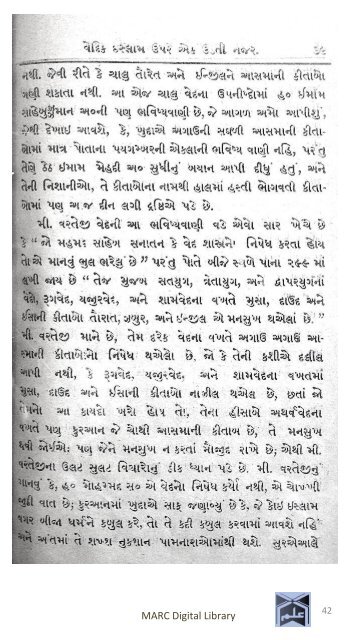 વેદિક ઇસ્લામ ઉપર એક ઉડતી નજર. ૩૯
નથી. જેવી રીતે કે ચાલુ તૌરેત અને ઈન્જીલને આસમાની કીતાબો
ગણી શકાતા નથી. આ એજ ચાલુ વેદના ઉપનીષદોમાં હ૦ ઈમામ
સાહેબુઝ્ઝમાન અ૦ની પણ ભવિષ્યવાણી છે, જે આગળ અમો આપીશું,
જેથી દેખાઈ આવશે, કે, ખુદાએ અગાઉની સઘળી આસમાની કીતા-
બોમાં માત્ર પોતાના પયગમ્બરની એકલાની ભવિષ્ય વાણી નહિ, પરંતુ
તેણે ઠેઠ ઇમામ મેહદી અ૦ સુધીનું બયાન આપી દીધું હતું, અને
તેની નિશાનીઓ, તે કીતાબોના નામથી હાલમાં હસ્તી ભોગવતી કીતા-
બોમાં પણ અ જ દીન લગી દ્રષ્ટિએ પડે છે.
મી. વરતેજી વેદની આ ભવિષ્યવાણી વડે એવો સાર ખેંચે છે
કે “ જો મહમદ સાહેબ સનાતન કે વેદ શાસ્ત્રનો નિષેધ કરતા હોય
તો એ માનવું ભુલ ભરેલું છે ” પરંતુ પોતે બીજે સ્થળે પાના ૨૯૬ માં
લખી જાય છે “ તેજ મુજબ સતયુગ, ત્રેતાયુગ, અને દ્વાપરયુગનાં
વેદો, રૂગવેદ, યજુરવેદ, અને શામવેદના વખતે મુસા, દાઉદ અને
ઇસાની કીતાબો તૌરાત, ઝબુર, અને ઈન્જીલ એ મનસુખ થએલાં છે. ”
મી. વરતેજી માને છે, તેમ દરેક વેદના વખતે અગાઉ અગાઉ આસ-
માની કીતાબોનો નિષેધ થએલો છે. જો કે તેની કશીએ દલીલ
આપી નથી, કે રૂગવેદ, યજુરવેદ, અને શામવેદના વખતમાં
મુસા, દાઉદ અને ઈસાની કીતાબો નાઝીલ થએલ છે, છતાં જો
તેમનો આ કાયદો ખરો હોય તો, તેના હીસાબે અથર્વવેદના
વખતે પણ કુરઆન જે ચોથી આસમાની કીતાબ છે, તે મનસુખ
થવી જોઈએ; પણ જેને મનસુખ ન કરતાં મૌજુદ રાખે છે; એથી મી.
વરતેજીના ઉલટ સુલટ વિચારોનું ઠીક ધ્યાન પડે છે. મી. વરતેજીનું
માનવું કે, હ૦ મોહમ્મદ સ૦ એ વેદોનો નિષેધ કર્યો નથી, એ ચોખ્ખી
જુઠ્ઠી વાત છે; કુરઆનમાં ખુદાએ સાફ જણાવ્યું છે કે, જે કોઇ ઇસ્લામ
વગર બીજા ધર્મને કબુલ કરે, તો તે કદી કબુલ કરવામાં આવશે નહિં
અને અંતમાં તે શખ્શ નુકશાન પામનારાઓમાંથી થશે. સુરએઆલે
MARC Digital Library
42